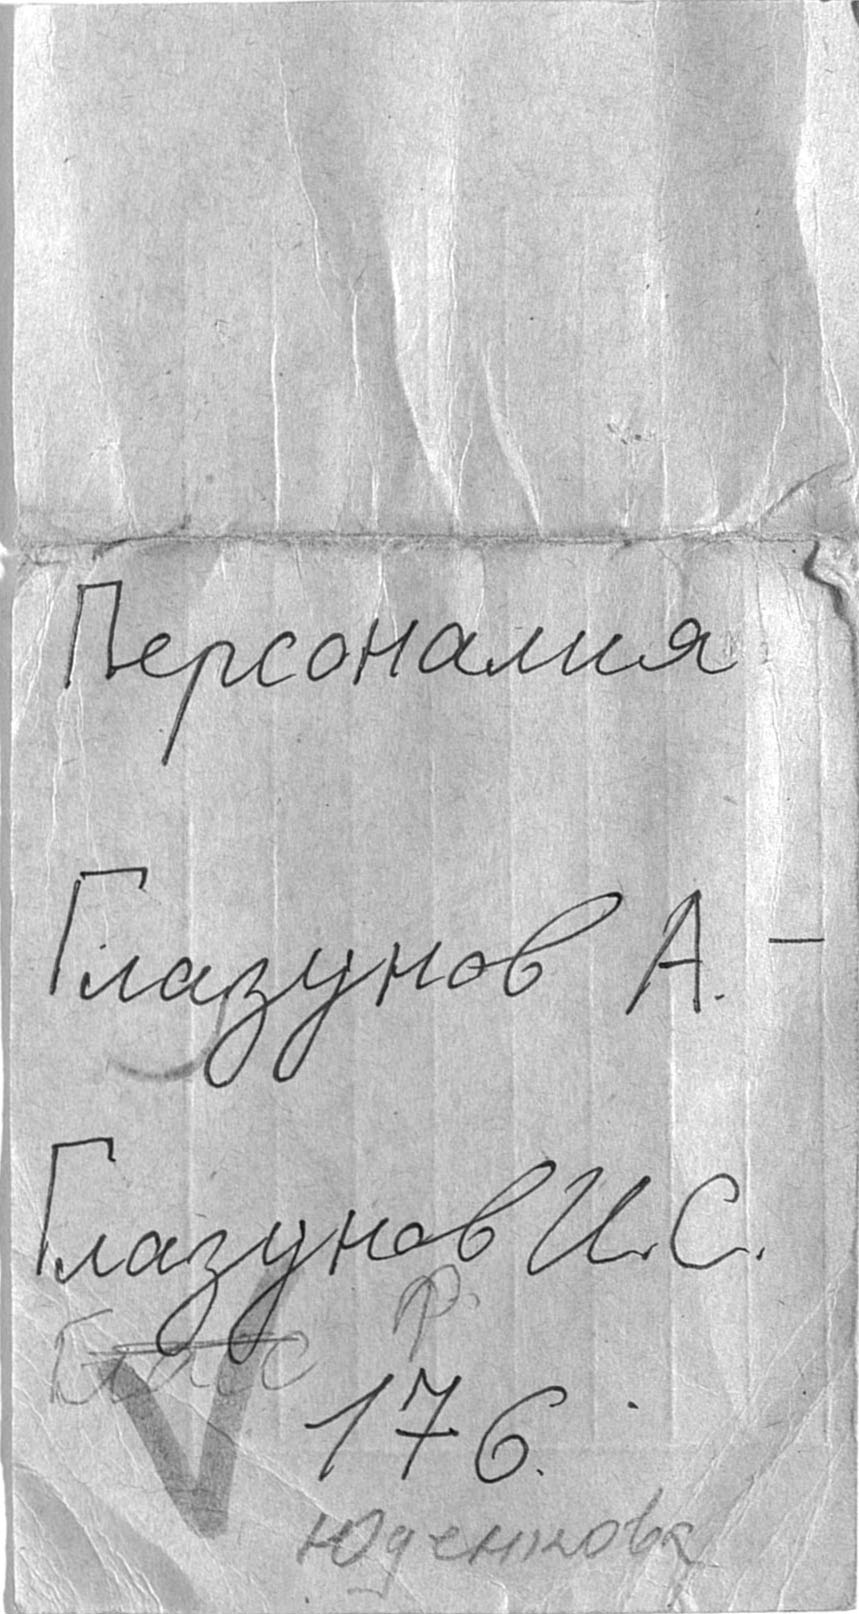 Персоналия
Глазунов А. –
Глазунов И.С.
Р.
176.
Юденкова